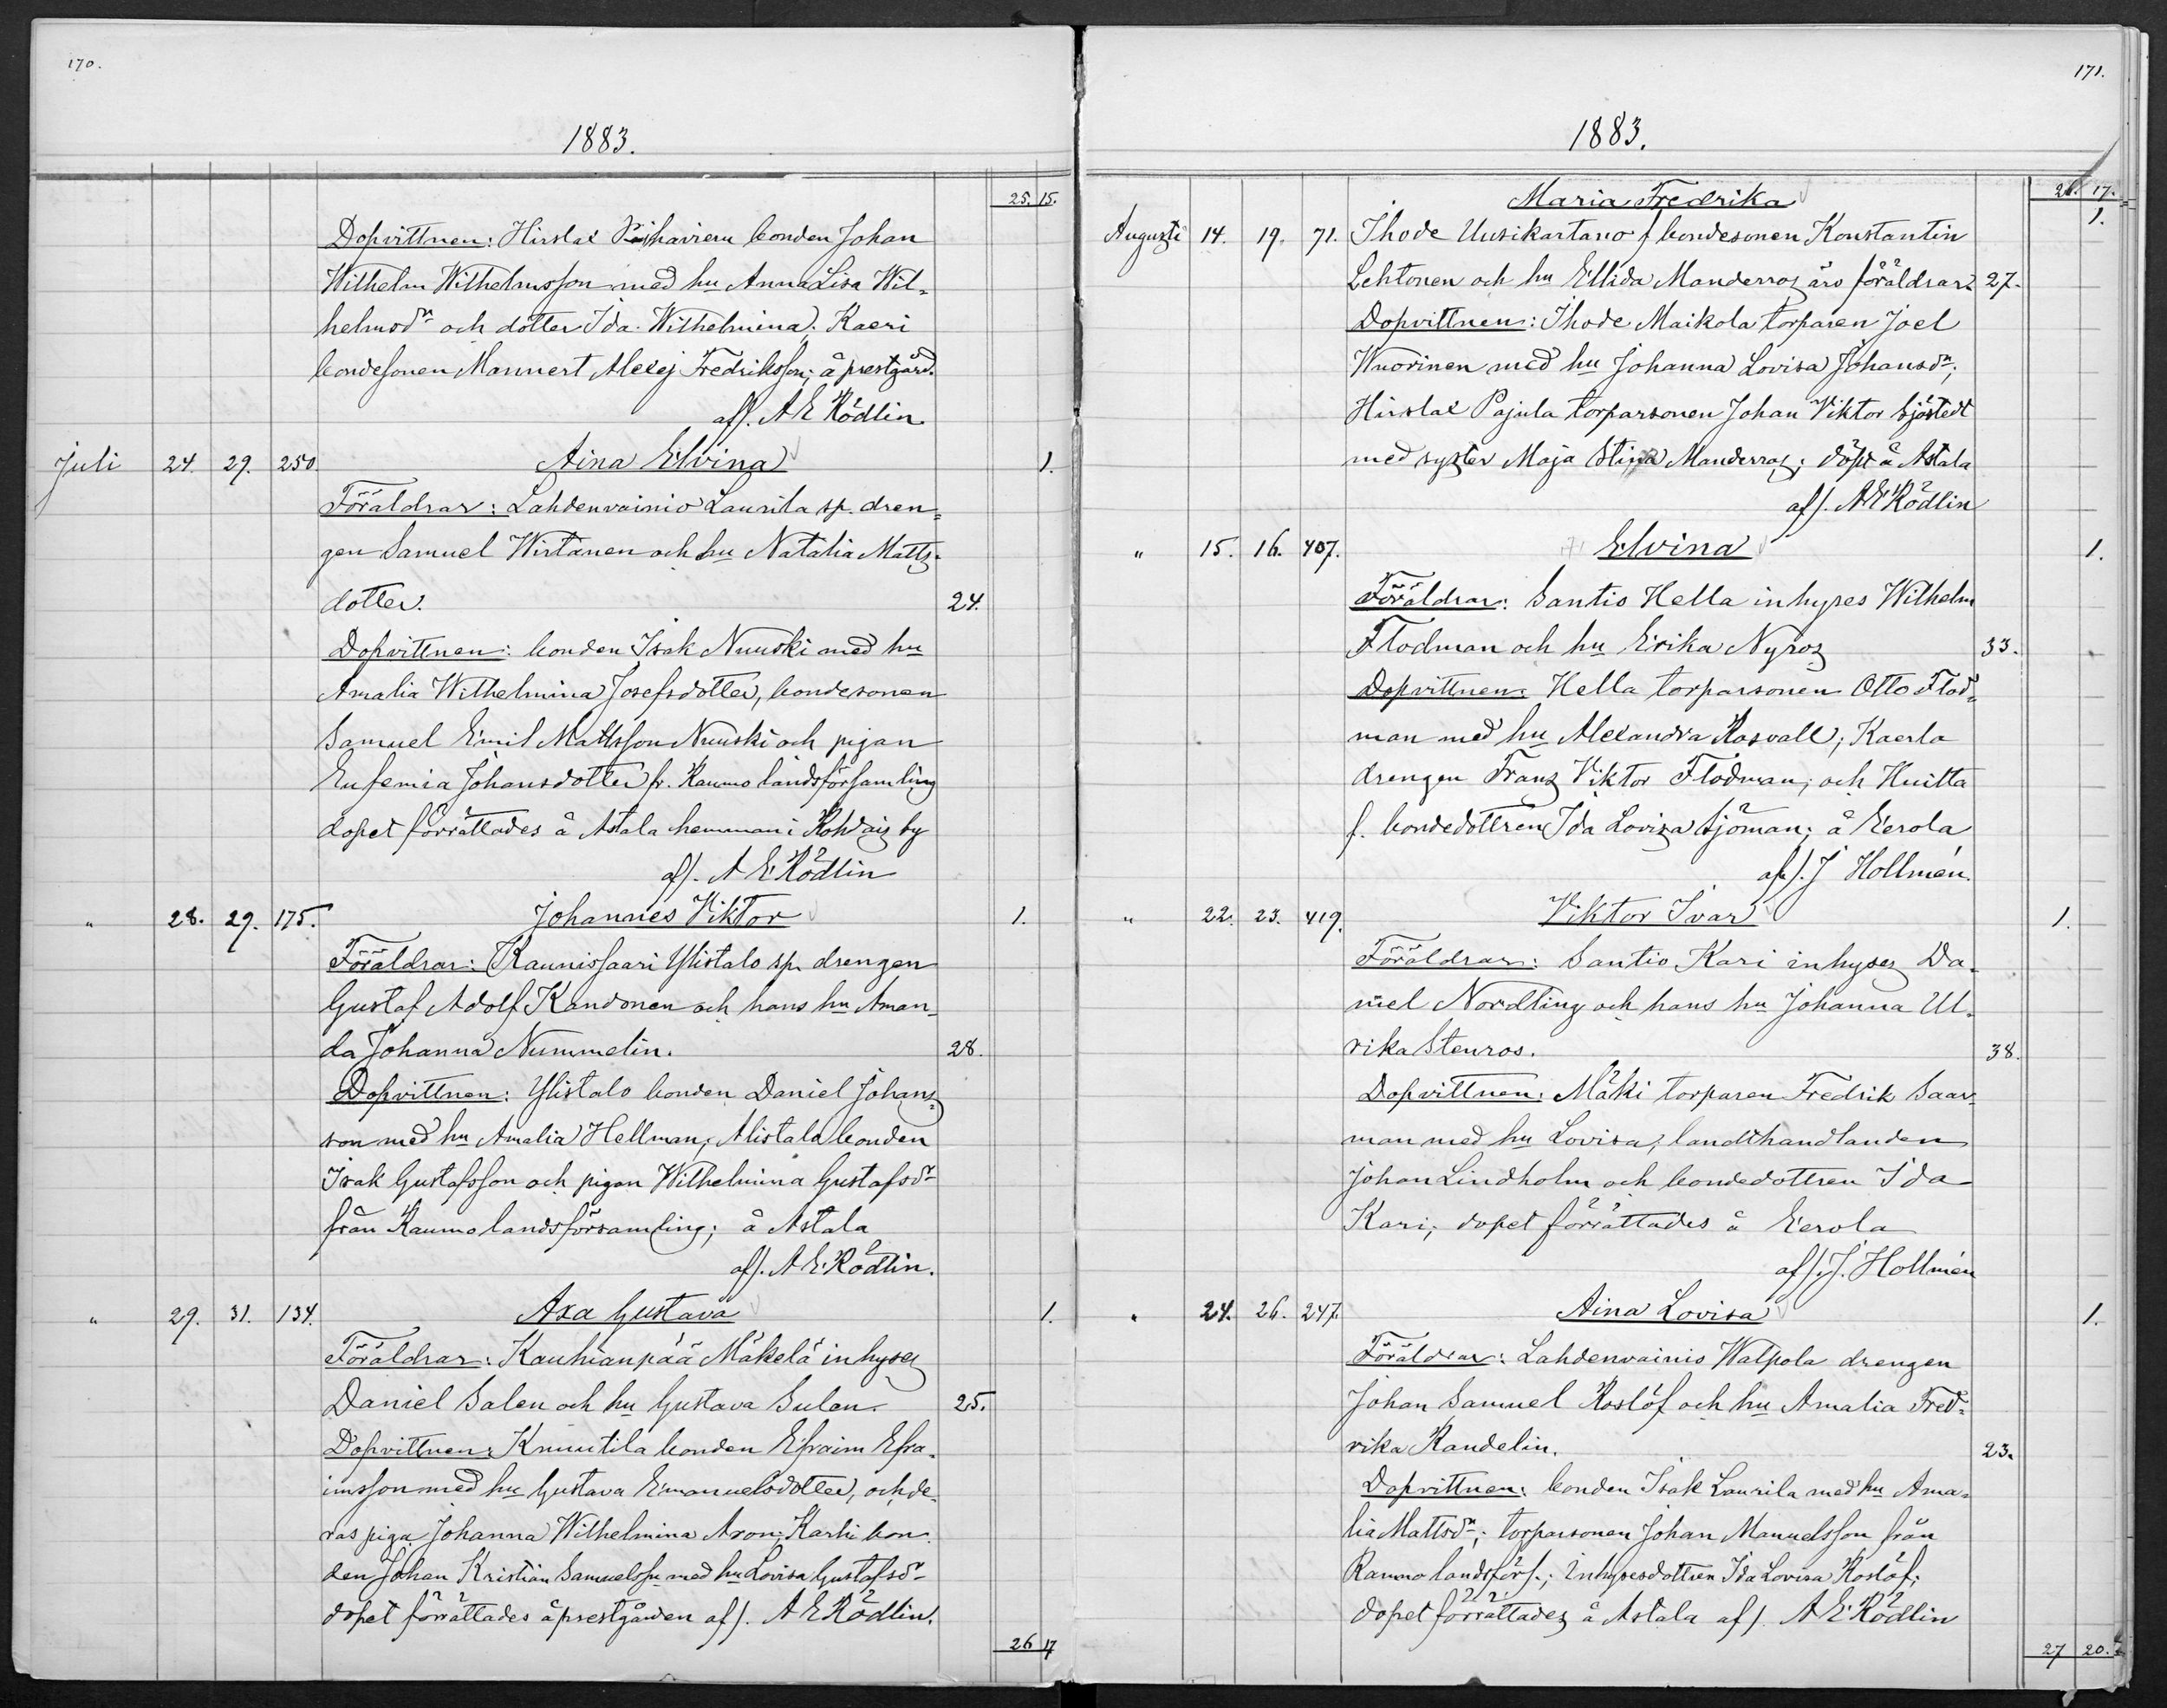 170.
1883.
25. 15.
Dopvittnen: Hirslax Pihavieru bonden Johan
Wilhelm Wilhelmsson med hu Anna Lisa Wil-
helmsdr och dotter Ida Wilhelmina; Kaeri
bondesonen Mannert Alexej Fredriksson; å prestgård.
af/. A E Rödlin
Juli 24. 29. 250 Aina Elvina 1.
Föräldrar: Lahdenvainio Laurila sp. dren=
gen Samuel Wirtanen och hu Natalia Matts-
dotter. 24.
Dopvittnen: bonden Isak Nuuski med hu
Amalia Wilhelmina Josefsdotter, bondesonen
Samuel Emil Mattsson Nuuski och pigan
Eufemia Johansdotter fr. Raumo landsförsamling
dopet förrättades å Astala hemman i Kohdais by
af/. A E Rödlin
" 28. 29. 175. Johannes Viktor 1.
Föräldrar: Kaunissaari Ylistalo sp. drengen
Gustaf Adolf Kandonen och hans hu Aman-
da Johanna Nummelin. 28.
Dopvittnen: Ylistalo bonden Daniel Johans-
son med hu Amalia Hellman; Alistalo bonden
Isak Gustafsson och pigan Wilhelmina Gustafsdr
från Raumo landsförsamling; å Astala
af/. A E Rödlin.
" 29. 31. 134. Axa Gustava 1.
Föräldrar: Kauhianpää Mäkelä inhyses
Daniel Salen och hu Gustava Sulen. 25.
Dopvittnen: Knuutila bonden Efraim Efra-
imsson med hu Gustava Emanuelsdotter, och de-
ras piga Johanna Wilhelmina Axon; Karhi bon-
den Johan Kristian Samuelsson med hu Lovisa Gustafsdr
dopet förrättades å prestgården af/. A E Rödlin.
26 17
171.
1883.
26. 17.
Maria Fredrika 1.
Augusti 14. 19. 71. Ihode Uusikartano f bondesonen Konstantin
Lehtonen och hu Ellida Manderros äro föräldrar 27.
Dopvittnen: Ihode Maikola torparen Joel
Wuorinen med hu Johanna Lovisa Johansdr;
Hirslax Pajula torparsonen Johan Viktor Sjöstedt
med syster Maja Stina Manderros; döpt å Astala
af/. A E Rödlin
" 15. 16. 407. Elvina 1.
Föräldrar: Santio Hella inhyses Wilhelm
Flodman och hu Erika Nyros 33.
Dopvittnen: Hella torparsonen Otto Flod-
man med hu Alexandra Rosvall; Kaerla
drengen Frans Viktor Flodman; och Huitta
f. bondedottren Ida Lovisa Sjöman; å Eerola
af/. J Hollmén.
" 22. 23. 419. Viktor Ivar 1.
Föräldrar: Santio Kari inhyses Da-
niel Nordling och hans hu Johanna Ul-
rika Stenros. 38.
Dopvittnen: Mäki torparen Fredrik Saar-
man med hu Lovisa; landthandlanden
Johan Lindholm och bondedottren Ida
Kari; dopet förrättades å Eerola
af/. J. Hollmén
" 24. 26. 247. Aina Lovisa 1.
Föräldrar: Lahdenvainio Walpola drengen
Johan Samuel Roslöf och hu Amalia Fred-
rika Randelin. 23.
Dopvittnen: bonden Isak Laurila med hu Ama-
lia Mattsdr; torparsonen Johan Manuelsson från
Raumo landsförs.; Inhysesdottren Ida Lovisa Roslöf;
dopet förrättades å Astala af/. A E Rödlin
27 20.